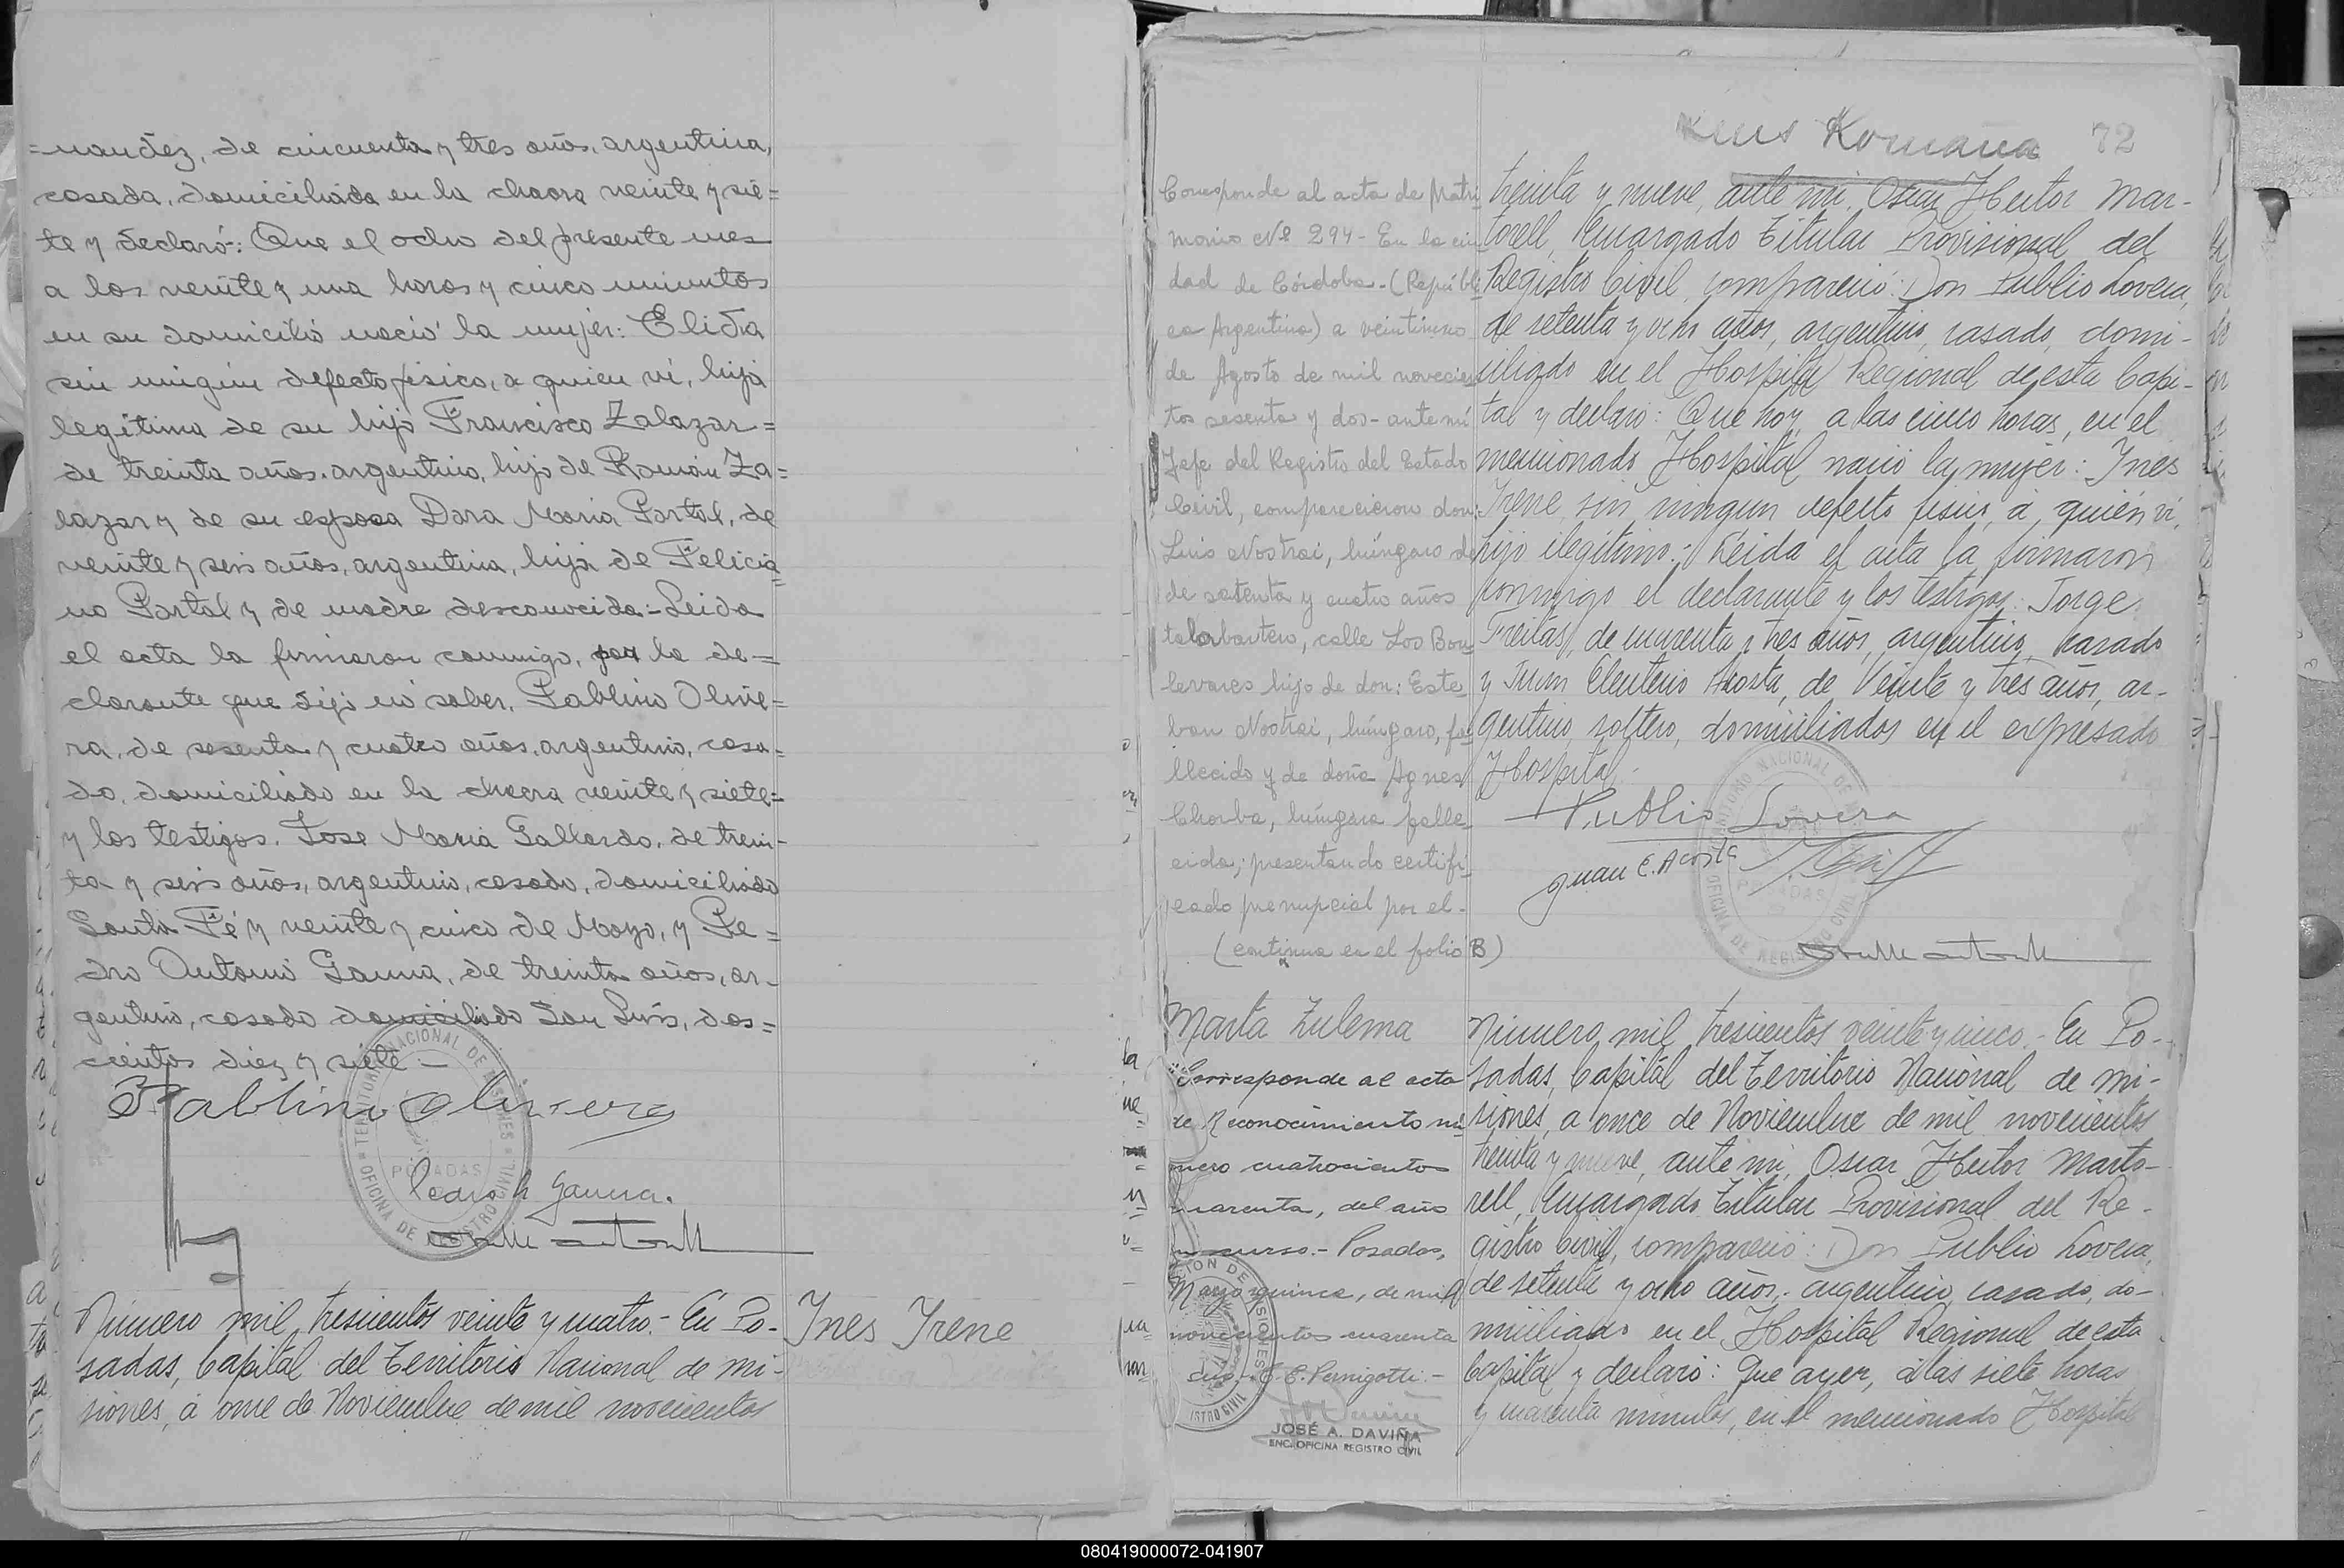 =nandez, de cincuenta y tres años, argentina,
casada, domiciliada en la chacra veinte y sie=
te y declaró: Que el ocho del presente mes
a las veinte y una horas y cinco minutos
en su domicilio nació la mujer: Elidia
sin ningún defecto físico, a quien vi, hija
legítima de su hijo Francisco Zalazar=
de treinta años, argentino, hijo de Román Za=
lazar y de su esposa Dora María Portal, de
veinte y seis años, argentina, hija de Felicia=
no Portal y de madre desconocida.- Leida
el acta la firmaron conmigo, por la de=
clarante que dijo no saber, Pablino Olive=
ra, de sesenta y cuatro años, argentino, casa=
do, domiciliado en la chacra veinte y siete=
y los testigos. Jose María Gallardo, de trein-
ta y seis años, argentino, casado, domiciliado
Santa Fé y veinte y cinco de Mayo, y Pe=
dro Antonio Gauna, de treinta años, ar-
gentino, casado domiciliado San Luis, dos=
cientos diez y siete -
Pablino Olivera
Pedro A Gauna.
TERRITORIO NACIONAL DE MISIONES
POSADAS
OFICINA DE REGISTRO CIVIL
Ines Irene
Número mil, tresientos veinte y cuatro.- En Po-
sadas, Capital del Territorio Nacional de Mi-
siones, á once de Noviembre de mil novecientos
Romana 72
treinta y nueve, ante mi, Oscar Hector Mar-
torell, Encargado Titular Provisional del
Registro Civil, compareció: Don Publio Lovera,
de setenta y ocho años, argentino, casado, domi-
ciliado en el Hospital Regional de esta Capi-
tal y declaró: Que hoy, a las cinco horas, en el
mencionado Hospital nació la mujer: Ines
Irene, sin ningun defecto fisico, á quién vi,
hijo ilegitimo.- Leida el acta la firmaron
conmigo el declarante y los testigos: Jorge
Freitas, de cuarenta y tres años, argentino, casado
y Juan Eleuterio Acosta, de Veinte y tres años, ar-
gentino, soltero, domiciliados en el expresado
Hospital.-
Publio Lovera
Juan E. Acosta
TERRITORIO NACIONAL DE
POSADAS
OFICINA DE REGISTRO CIVIL
Corresponde al acta de Matri
monio Nº 294 - En la ciu
dad de Córdoba - (Repúbli
ca Argentina) a veintinueve
de Agosto de mil novecien
tos sesenta y dos - ante mí
Jefe del Registro del Estado
Civil, comparecieron don:
Luis Nostrai, húngaro de
de setenta y cuatro años
talabartero, calle Los Bou
levares hijo de don: Este
ban Nostrai, húngaro, fa
llecido y de doña Agnes
Chorba, húngara falle
cida; presentando certifi
cado prenupcial por el -
(continua en el folio B)
Marta Zulema
Corresponde al acta
de Reconocimiento nú
mero cuatrocientos
cuarenta, del año
en curso.- Posadas,
Mayo quince, de mil
novecientos cuarenta
E. E. Pernigotti -
JOSÉ A. DAVIÑA
ENC. OFICINA REGISTRO CIVIL
Número mil, tresientos veinte y cinco.- En Po-
sadas, Capital del Territorio Nacional de Mi-
siones, a once de Noviembre de mil novecientos
treinta y nueve, ante mi, Oscar Hector Marto-
rell, Encargado Titular Provisional del Re-
gistro Civil, compareció: Don Publio Lovera,
de setenta y ocho años, argentino, casado, do-
miciliado en el Hospital Regional de esta
Capital y declaró: Que ayer, a las siete horas
y cuarenta minutos, en el mencionado Hospital
080419000072-041907